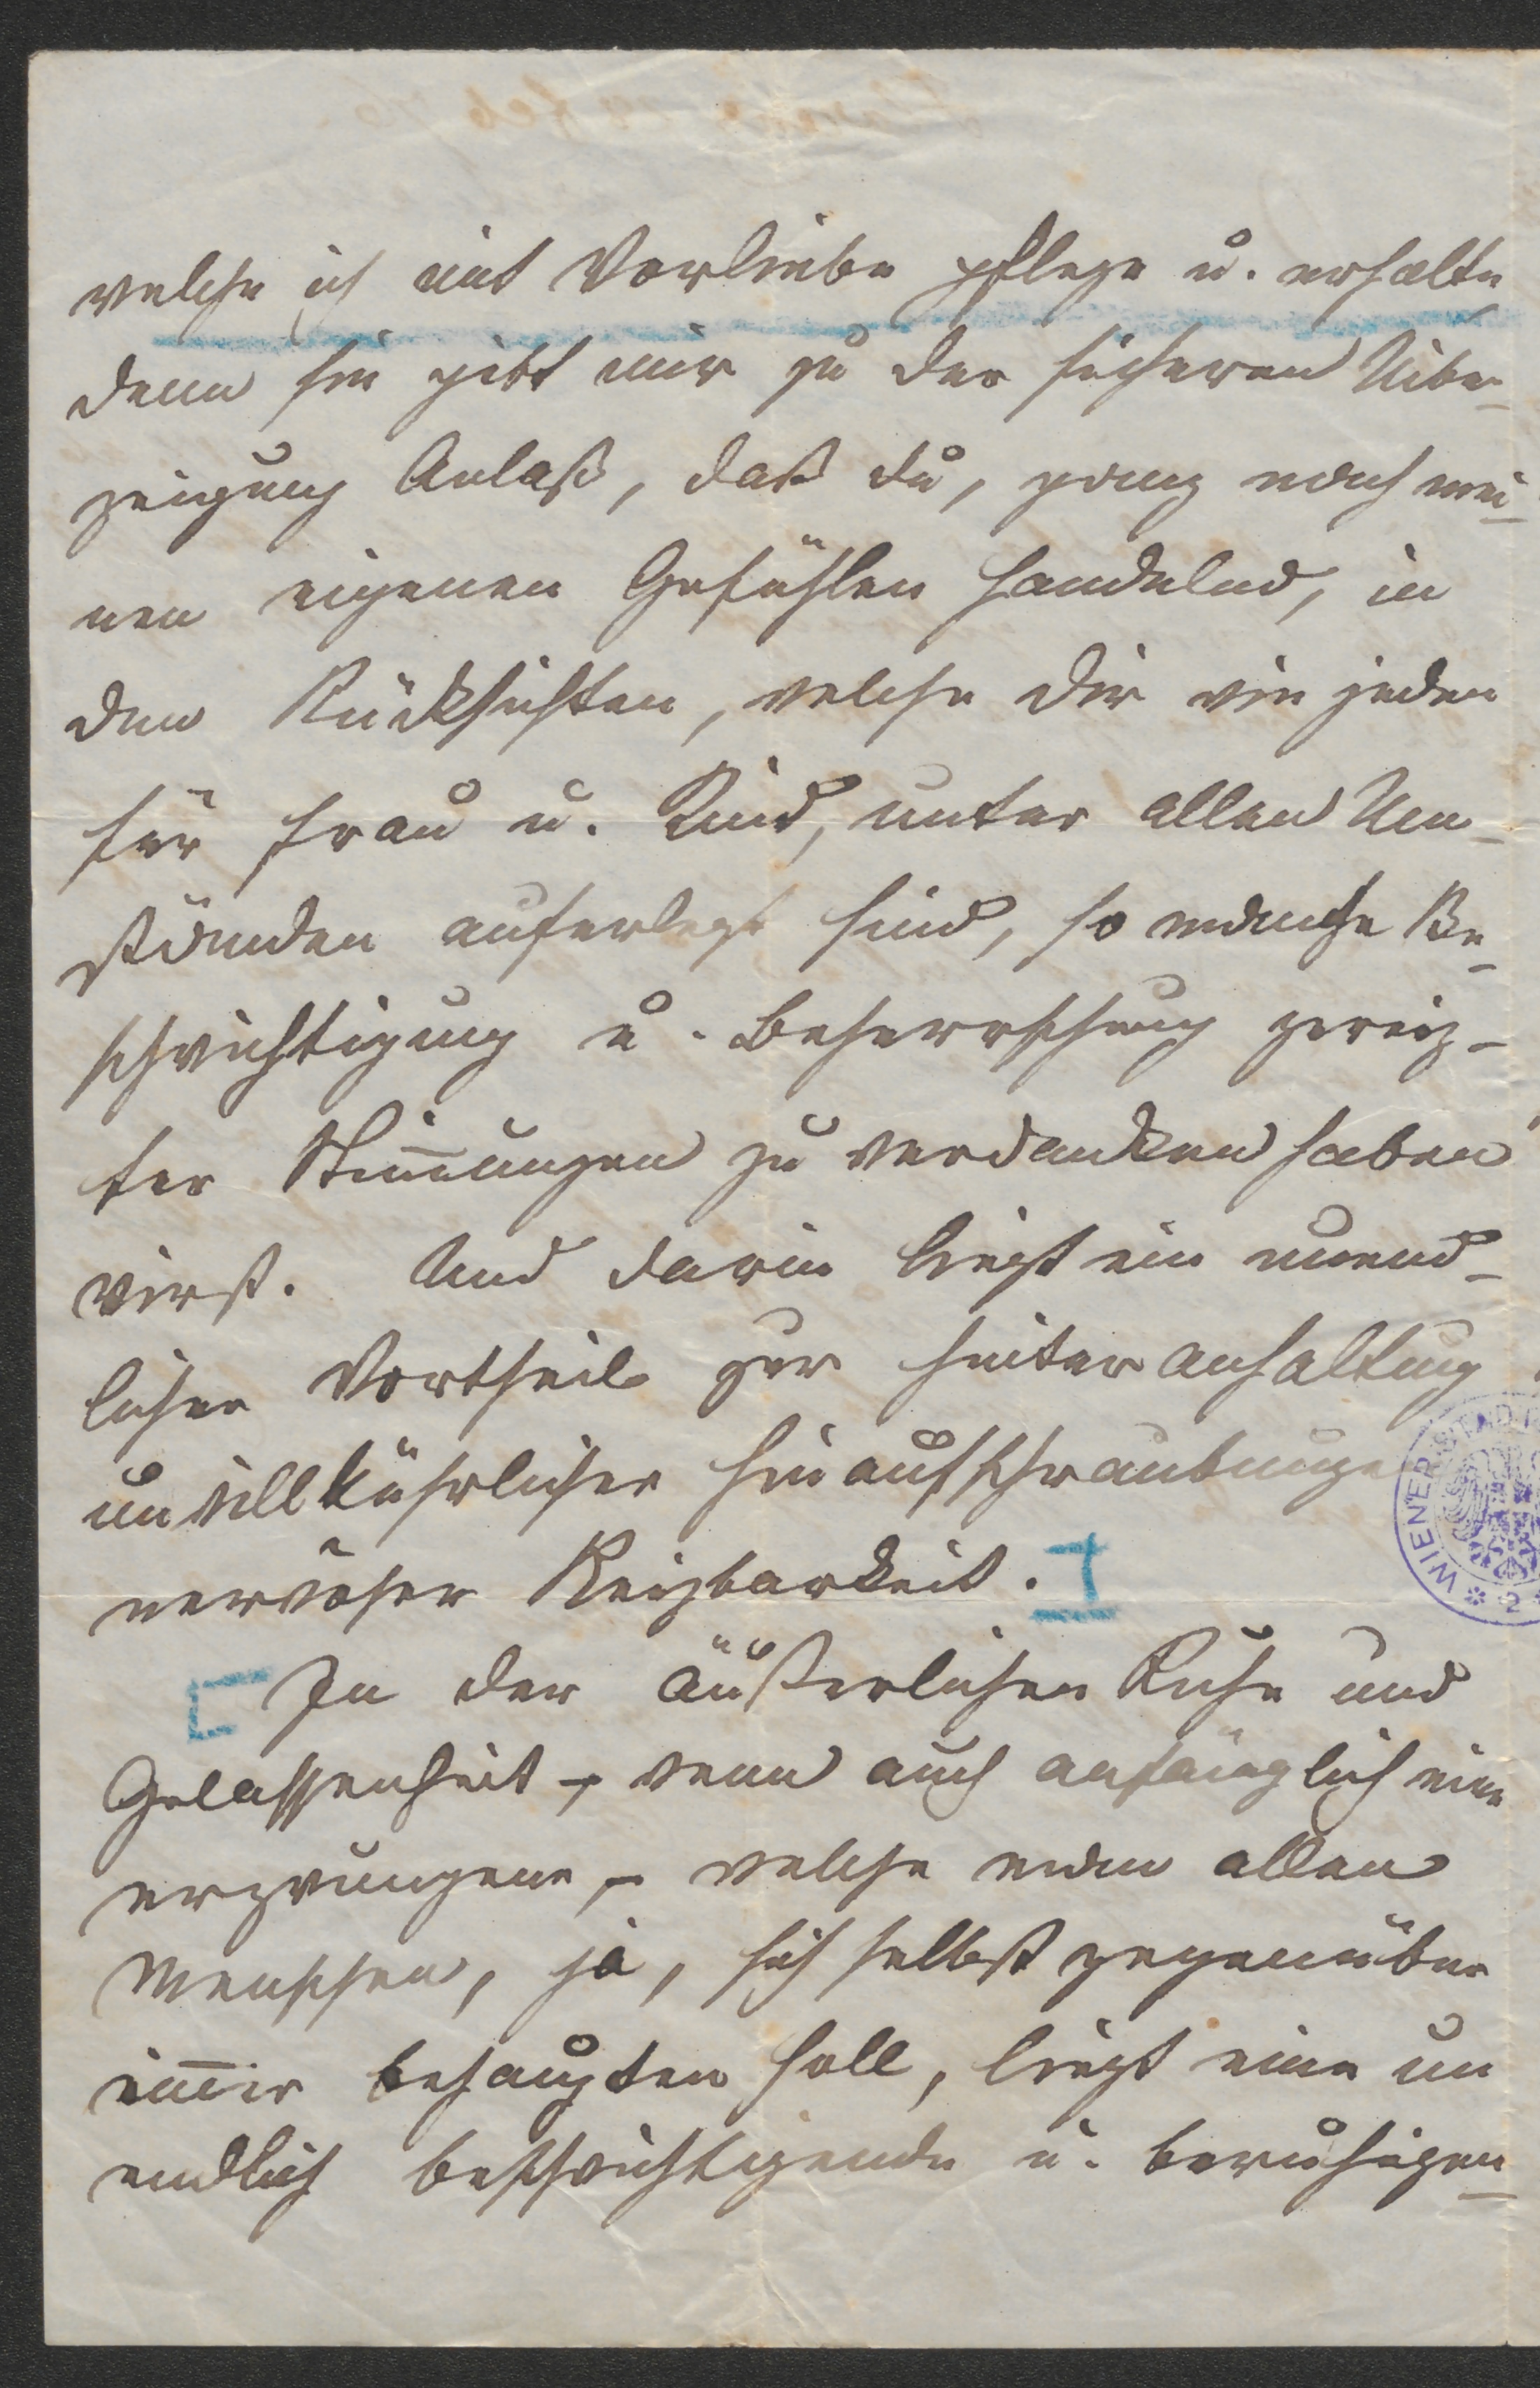 welche ich mit Vorliebe pflege u. erhalte,
denn sie gibt mir zu der sicheren Uiber-
zeigung Anlaß, daß du, ganz nach mei-
nen eigenen Gefühlen handelnd, in
den Rücksichten, welche dir wie jeden
für Frau u. Kind, unter allen Um-
ständen auferlegt sind, so manche Be-
schwichtigung u. Beherrschung gereiz-
ter Stim̅ungen zu verdanken haben
wirst. Und darin liegt ein unend-
licher Vortheil zur hintanhaltung
unwillkührlicher hinaufschraubunge
nervöser Reizbarkeit.
In der äußerlichen Ruhe und
Gelassenheit – wenn auch anfänglich eine
erzwungene, – welche man allen
Menschen, ja, sich selbst gegenüber
im̅er behaupten soll, liegt eine un
endlich beschwichtigende u. beruhigen-
WIENER STAD
2